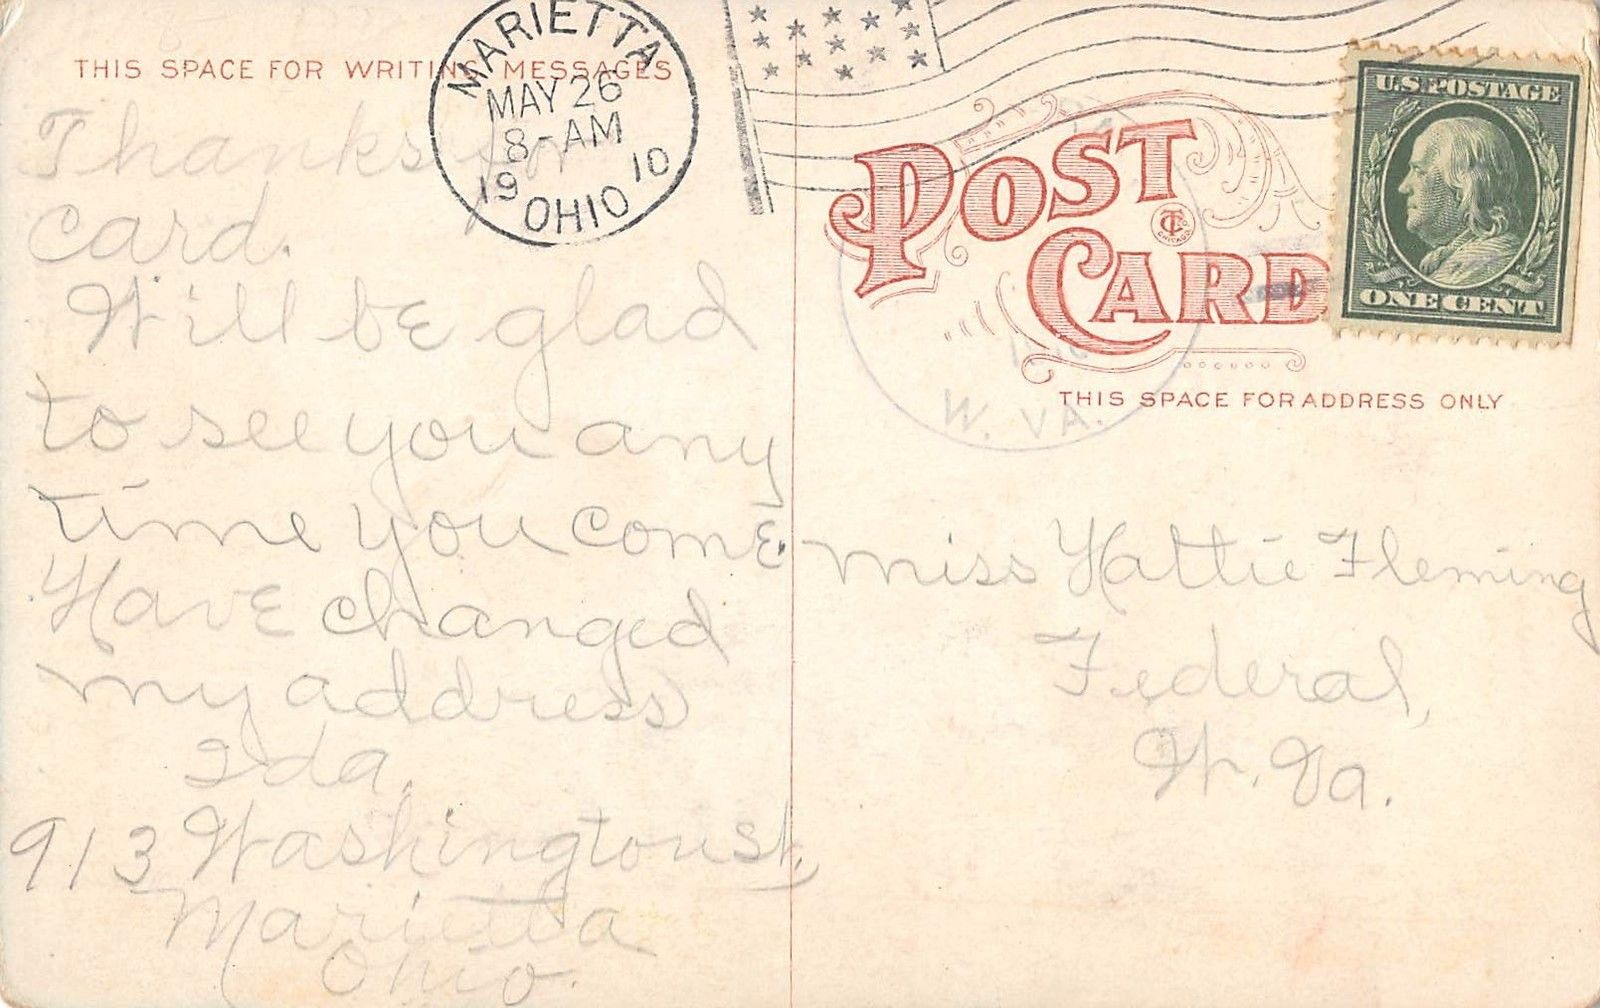 THIS SPACE FOR WRITING MESSAGES
MARIETTA
MAY 26
8-AM
1910
OHIO
U.S. POSTAGE
ONE CENT
POST
CARD
CHICAGO
W. VA.
THIS SPACE FOR ADDRESS ONLY
Thanks for
card.
Will be glad
to see you any
time you come.
Have changed
my address
Ida.
913 Washington St.,
Marietta
Ohio.
Miss Hattie Fleming
Federal,
W. Va.